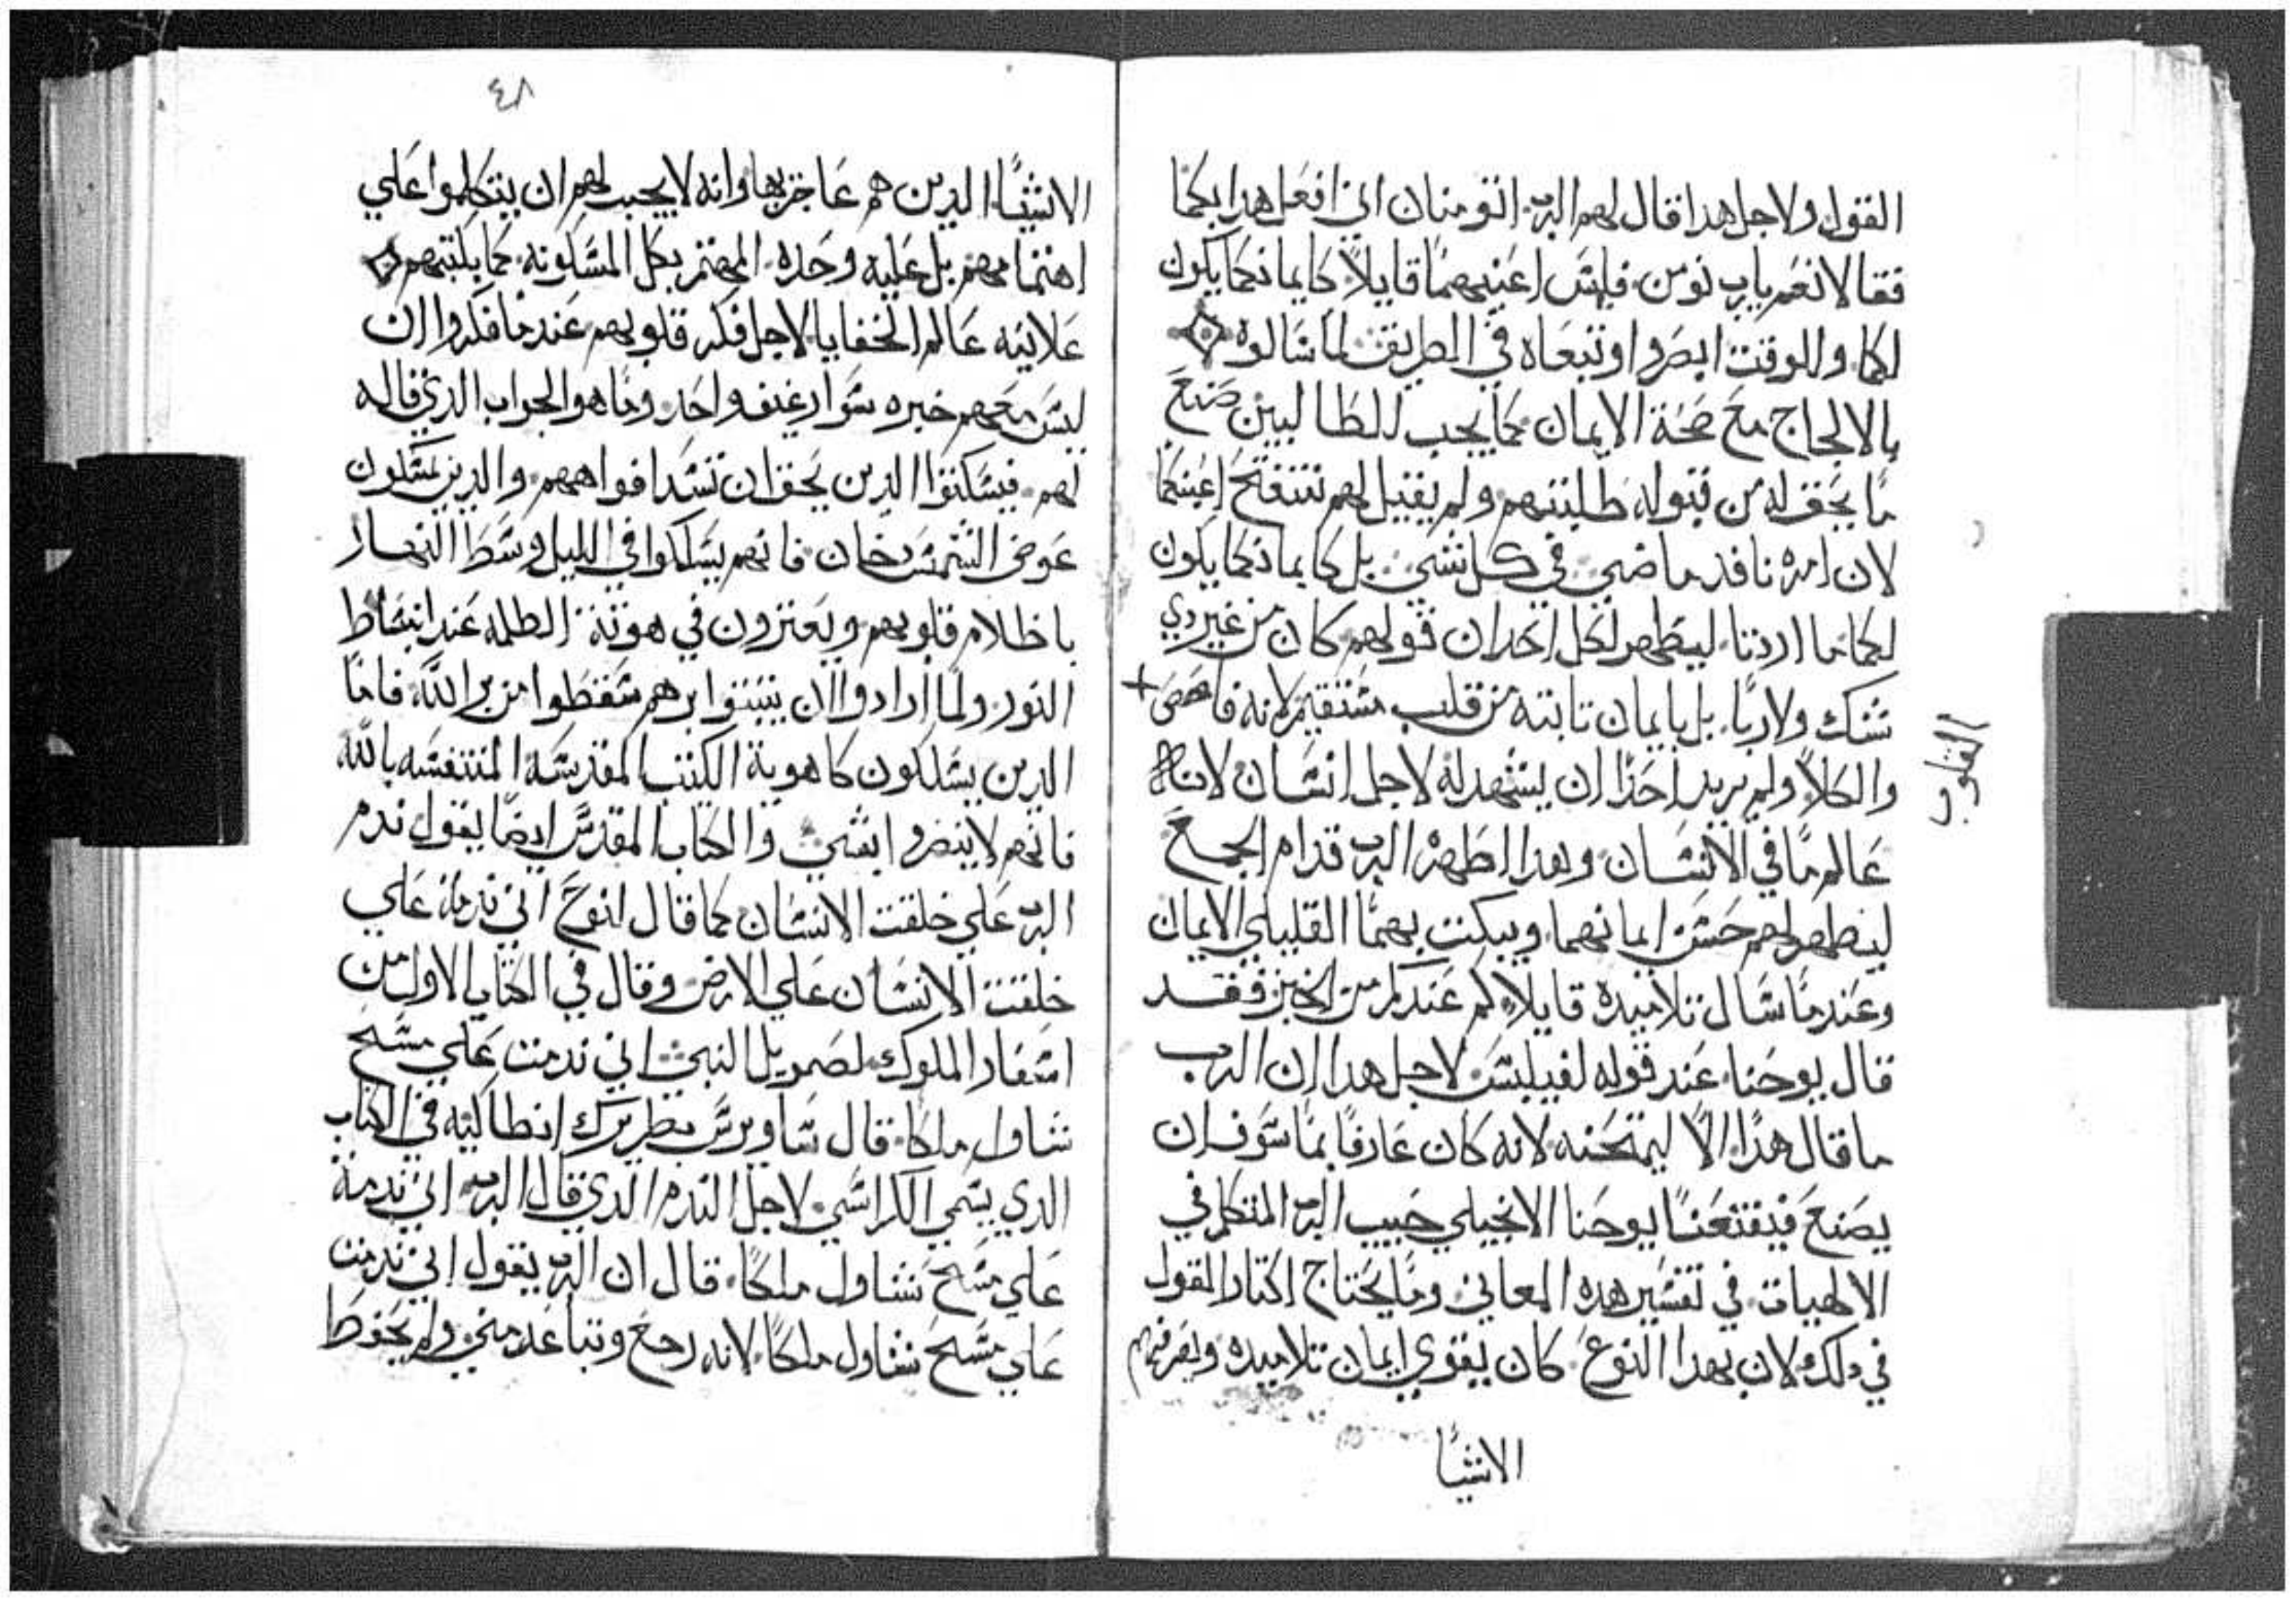 القول ولاجل هدا قال لهم الرب اتومنان اني افعل هدا بكما
فقالا نعم يارب نومن فلمس اعينهما قايلاً كايمانكما يكون
لكما وللوقت ابصروا وتبعاه في الطريق لما سالوه
بالالحاج مع صحة الايمان كما يجب للطالبين صنع
ما يحق له من قبوله طلبتهم ولم يقيل لهم تتفتح اعينكما
لان امره نافد ماضي في كل شي بل كايمانكما يكون
لكما ما اردتما ليظهر لكل احد ان قولهم كان من غير دي
شك ولا ريا بل بايمان تابته من قلب مستقيم لانه فاحص
القلوب
والكلا ولم يريد احدًا ان يشهد له لاجل انسان لانه
عالم ما في الانسان وهدا اظهره الرب قدام الجمع
ليظهر لهم حسن ايمانهما ويبكت بهما القليلي الايمان
وعندما سال تلاميده قايلا كم عندكم من الخبز فقد
قال يوحنا عند قوله لفيلبس لاجل هدا ان الرب
ما قال هدا الا ليمتحنه لانه كان عارفًا بما سوف ان
يصنع فيقنعنا يوحنا الانجيلي حبيب الرب المتكلم في
الالهيات في تفسير هده المعاني وما يحتاج اكتار القول
في دلك لان بهدا النوع كان يقوي ايمان تلاميده ويعرفهم
الاشيا
٤٨
الاشيا الدين هم عاجز بها وانه لا يجب لهم ان يتكلموا علي
اهتمامهم بل عليه وحده المهتم بكل المسكونه كما يكتبهم
علانيه عالم الخفايا لاجل فكر قلوبهم عندما فكروا ان
ليس معهم خبره سوا رغيف واحد وما هو الجواب الدي قاله
لهم فيسكتوا الدين يحق ان تسد افواههم والدين يمسكون
عوض الشمس دخان فانهم يسلكوا في الليل وسط النهار
باظلام قلوبهم ويعترون في هوتة الظلمه عند انبساط
النور ولما ارادوا ان يتبتوا برهم سقطوا من بر الله فاما
الدين يسلكون كا هوية الكتب المقدسه المتنفسه بالله
فانهم لا ينضروا بشي والكتاب المقدس ايضا يقول ندم
الرب علي خلقت الانسان كما قال لنوح اني ندمة علي
خلقت الانسان علي الارض وقال في الكتاب الاول من
اسفار الملوك لصمويل النبي اني ندمت علي مسح
شاول ملكا قال ساويرس بطريرك انطاكيه في الكتاب
الدي يسمي الكراسي لاجل الندم الدي قال الرب اني ندمة
علي مسح شاول ملكًا قال ان الرب يقول اني ندمت
علي مسح شاول ملكًا لانه رجع وتباعد مني ولم يحفظ